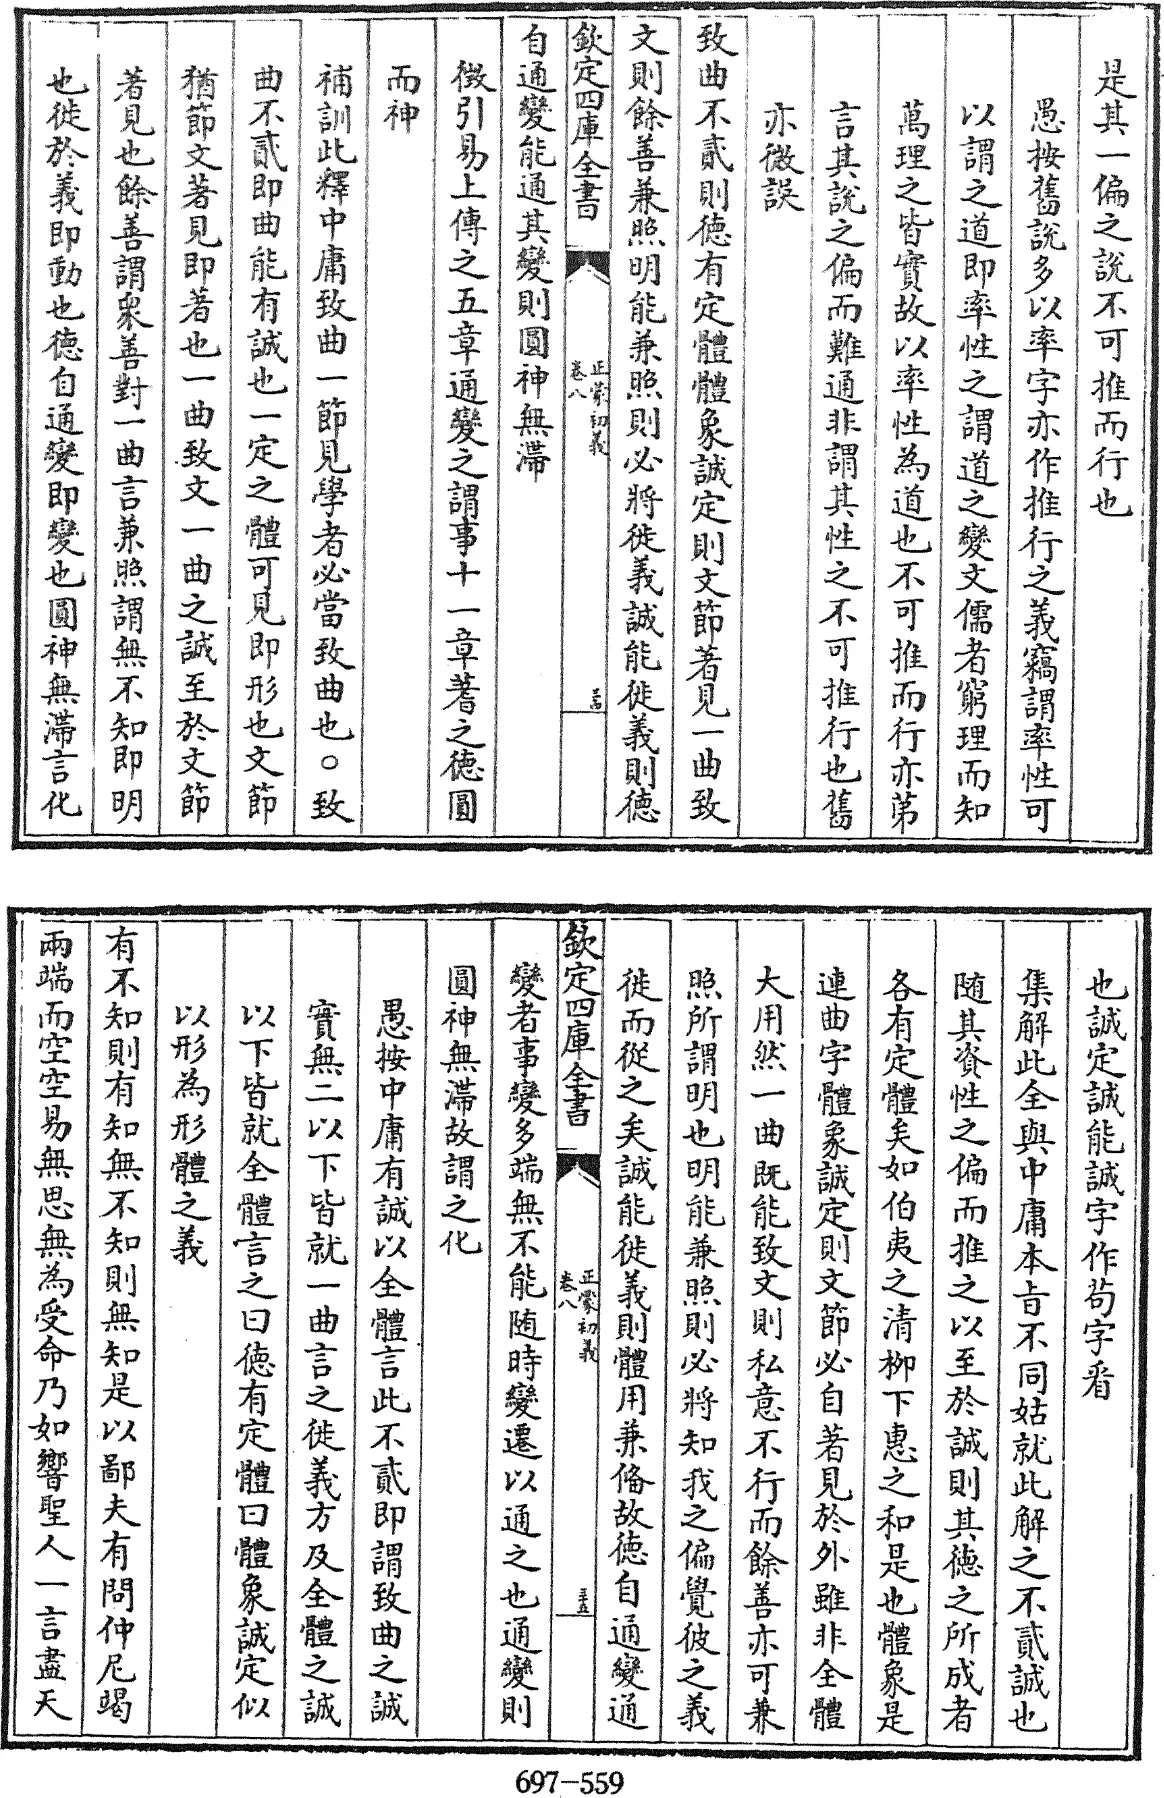 是其一偏之說不可推而行也
愚按舊說多以率字亦作推行之義竊謂率性可
以謂之道即率性之謂道之變文儒者窮理而知
萬理之皆實故以率性為道也不可推而行亦第
言其說之偏而難通非謂其性之不可推行也舊
亦微誤
致曲不貳則德有定體體象誠定則文節著見一曲致
文則餘善兼照明能兼照則必將徙義誠能徙義則德
欽定四庫全書
正蒙初義
卷八
三四
自通變能通其變則圓神無滯
徵引易上傳之五章通變之謂事十一章蓍之德圓
而神
補訓此釋中庸致曲一節見學者必當致曲也○致
曲不貳即曲能有誠也一定之體可見即形也文節
猶節文著見即著也一曲致文一曲之誠至於文節
著見也餘善謂衆善對一曲言兼照謂無不知即明
也徙於義即動也德自通變即變也圓神無滯言化
也誠定誠能誠字作苟字看
集解此全與中庸本旨不同姑就此解之不貳誠也
随其資性之偏而推之以至於誠則其德之所成者
各有定體矣如伯夷之清柳下惠之和是也體象是
連曲字體象誠定則文節必自著見於外雖非全體
大用然一曲既能致文則私意不行而餘善亦可兼
照所謂明也明能兼照則必將知我之偏覺彼之義
徙而從之矣誠能徙義則體用兼俻故德自通變通
欽定四庫全書
正蒙初義
卷八
三五
變者事變多端無不能随時變遷以通之也通變則
圓神無滯故謂之化
愚按中庸有誠以全體言此不貳即謂致曲之誠
實無二以下皆就一曲言之徙義方及全體之誠
以下皆就全體言之曰德有定體曰體象誠定似
以形為形體之義
有不知則有知無不知則無知是以鄙夫有問仲尼竭
兩端而空空易無思無為受命乃如響聖人一言盡天
697-559